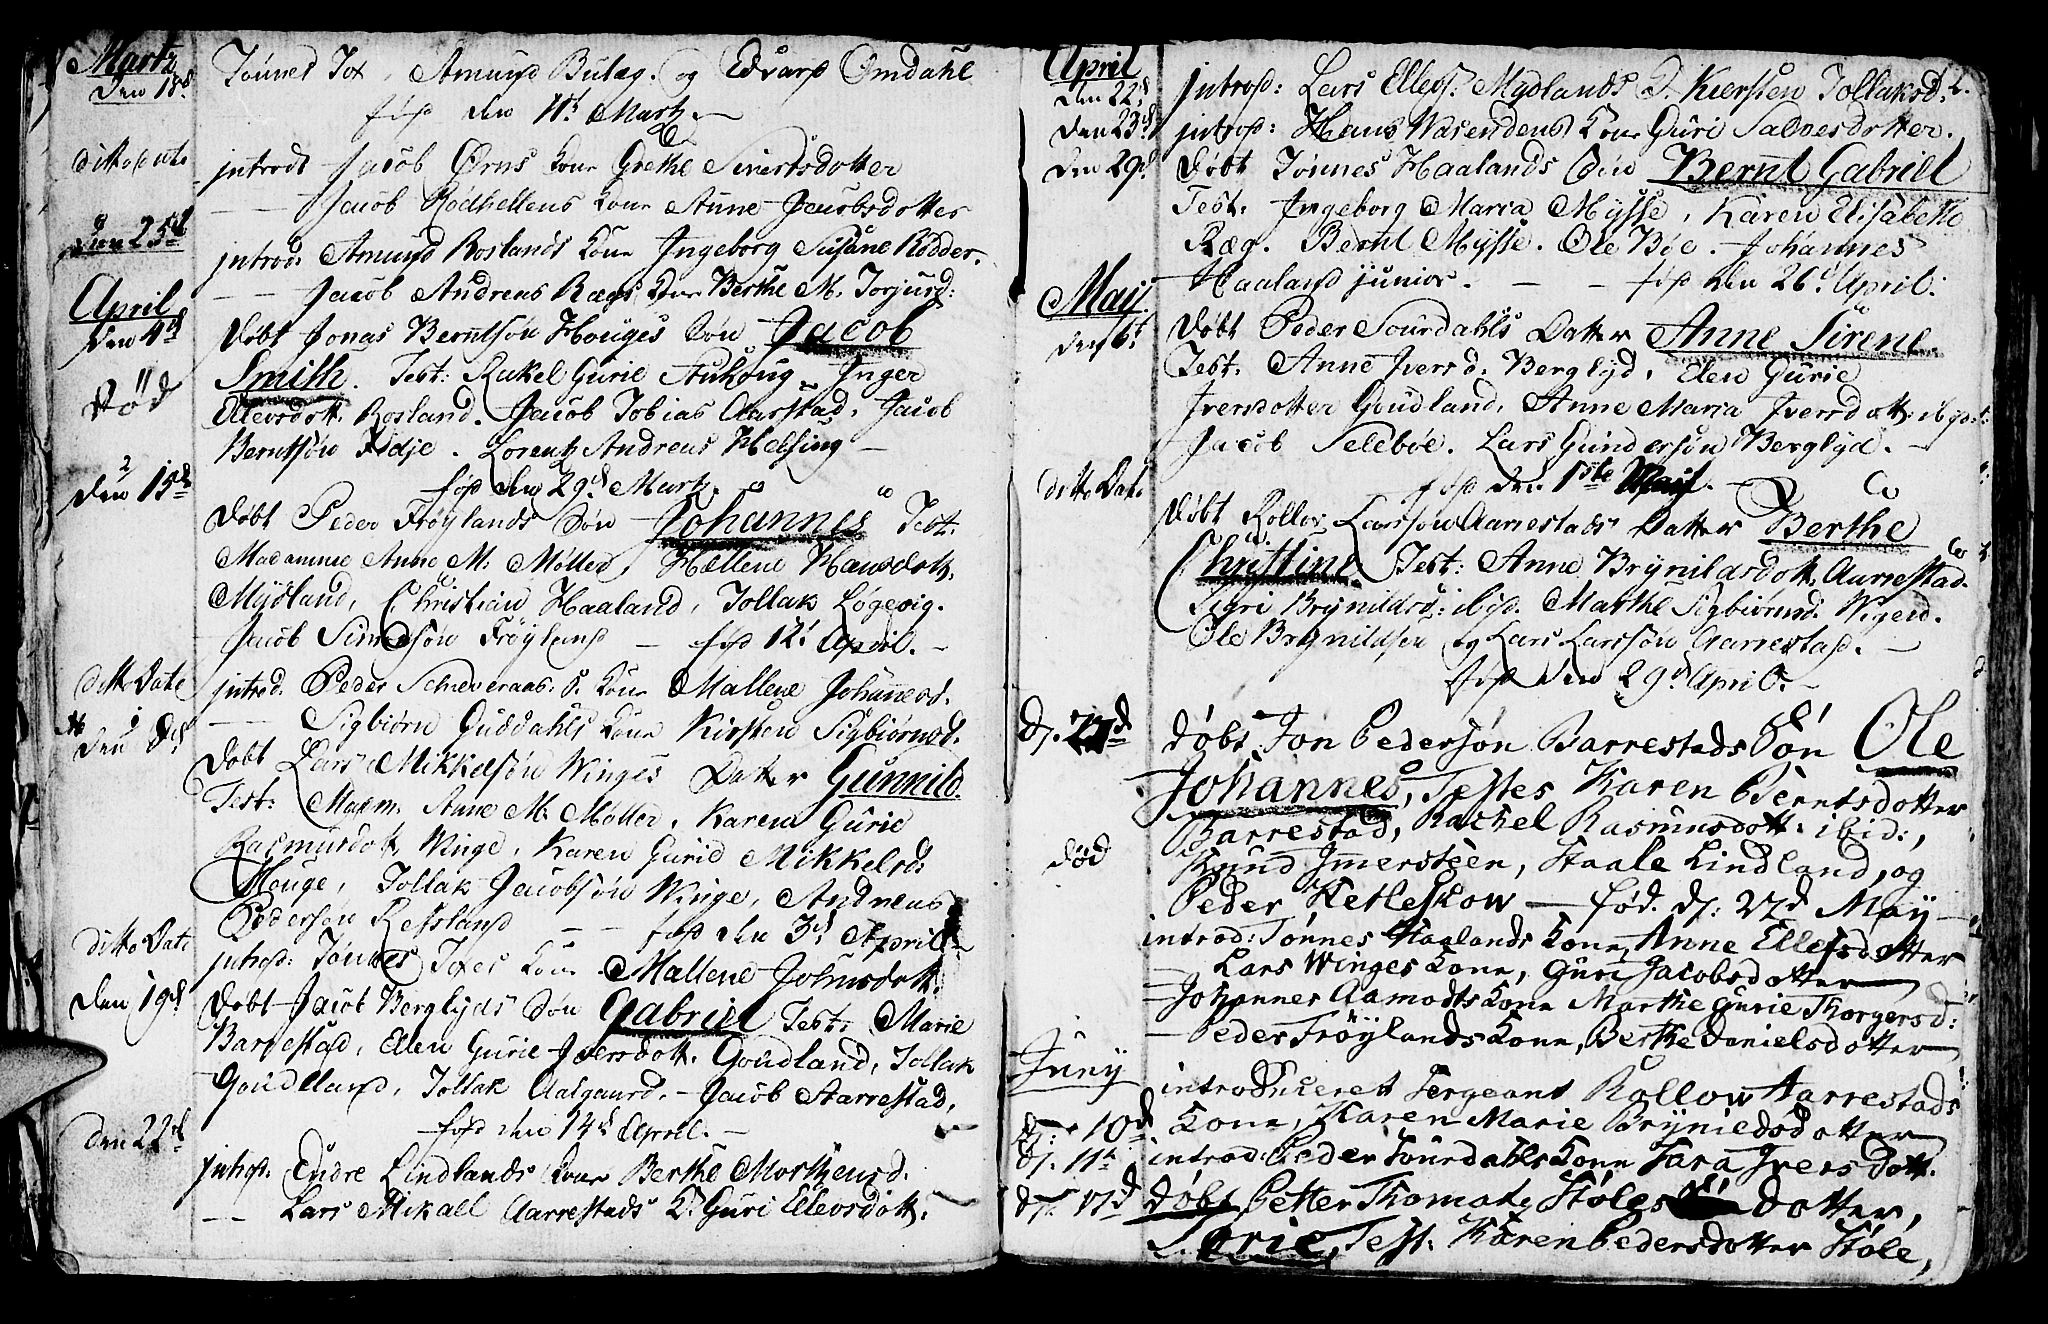 Martz
den 18d Tønnes Tox, Amund Bulæg. og Edvard Omdahl
fød den 11t Martz.
ditto Dato introd: Jacob Ørns Kone Grethe Sivertsdotter
— — Jacob Rødhellens Kone Anne Jacobsdotter
den 25d introd: Amund Roslands Kone Ingeborg Susane Rødder.
— — Jacob Andreas Rægs Kone Berthe M. Torjusd:
April
den 4d døbt Jonas Berntsøn Houges Søn Jacob
død Smith. Test: Rakel Gurie Inger
Ellevsdott. Rosland. Jacob Tobias Aarstad, Jacob
Berntsøn Lorentz Andreas Helsing —
fød den 29d Martz.
den 15d døbt Peder Frøylands Søn Johannes Test:
Madamme Anne M. Møller, Hellene Hansdott.
Mydland, Christian Haaland, Tollak Løgevig.
Jacob Simonsøn Frøyland — fød 12t April. —
ditto Date introd. Peder Skeveraas: s. Kone Mallene Johanesd.
— — Sigbiørn Guddahls Kone Kirsten Sigbiørnsd.
den 8d døbt Lars Mikkelsøn Winges Datter Gunnild.
Test: Madm. Anne M. Møller, Karen Gurie
Rasmusdott. Winge, Karen Gurie Mikkelsd:
Houge, Tollak Jacobsøn Winge, Andreas
Pedersøn Refsland — — fød den 3d April
ditto Date introd: Tønnes Toxes Kone Mallene Johnsdott.
den 19d døbt Jacob Berglyds Søn Gabriel Test: Marie
Barrestad, Ellen Gurie Iversdott. Goudland, Tollak
Goudland, Tollak Aalgaard. — Jacob Aarrestad,
fød den 14d April. —
den 22d introd. Endre Lindlands Kone Berthe Morthensd.
— — Lars Mikall Aarrestads K. Guri Ellevsdott.
April
den 22d introd: Lars Ellevs. Mydlands K. Kiersten Tollaksd:
den 23d introd: Hans Wasendens Kone Guri Salvesdotter.
den 29d døbt Tønnes Haalands Søn Bernt Gabriel
Test: Ingeborg Maria Mysse, Karen Elisabeth
Ræg. Bernt Mysse. Ole Bøe. Johannes
Haaland junior. — — fød den 26d April.
Maij
den 6t døbt Peder Sourdahls Datter Anne Sirene.
Test. Anne Iversd. Berglyd, Elen Gurie
Iversdotter Goudland, Anne Maria Iversdott: ibid:
Jacob Selebøe. Lars Gundersøn Berglyd. —
fød den 1ste Maij. —
ditto Dato døbt Rollov Larssøn Aarrestads Datter Berthe
Christine. Test: Anne Brynildsdott. Aarrestad.
Sigri Brynildsd: ibid. Marthe Sigbiørnsd: Vigesd.
Ole Brynildsen og Lars Larssøn Aarrestad. —
fød den 29d April. —
d. 27d døbt Jon Pedersøn Barrestads Søn Ole
Johannes, Testes Karen Berntsdotter
Barrestad, Rachel Rasmusdott: ibid:,
død Knud Immersteen, Staale Lindland, og
Peder Hetleskow — fød. d: 22d May —
introd: Tønnes Haalands Kone, Anne Ellefsdotter
Lars Winges Kone, Guri Jacobsdotter —
— Johannes Aamodts Kone Marthe Gurie Thorgersd:
— Peder Frøylands Kone, Berthe Danielsdotter —
Juny introduceret Sergeant Rollow Aarrestads
d: 10d Kone, Karen Marie Bryniedsdotter
d. 11te introd: Peder Sourdahls Kone Sara Iversdott.
d. 17d døbt Petter Thomas: Støles dotter,
Test: Karen Pedersdotter Støle,